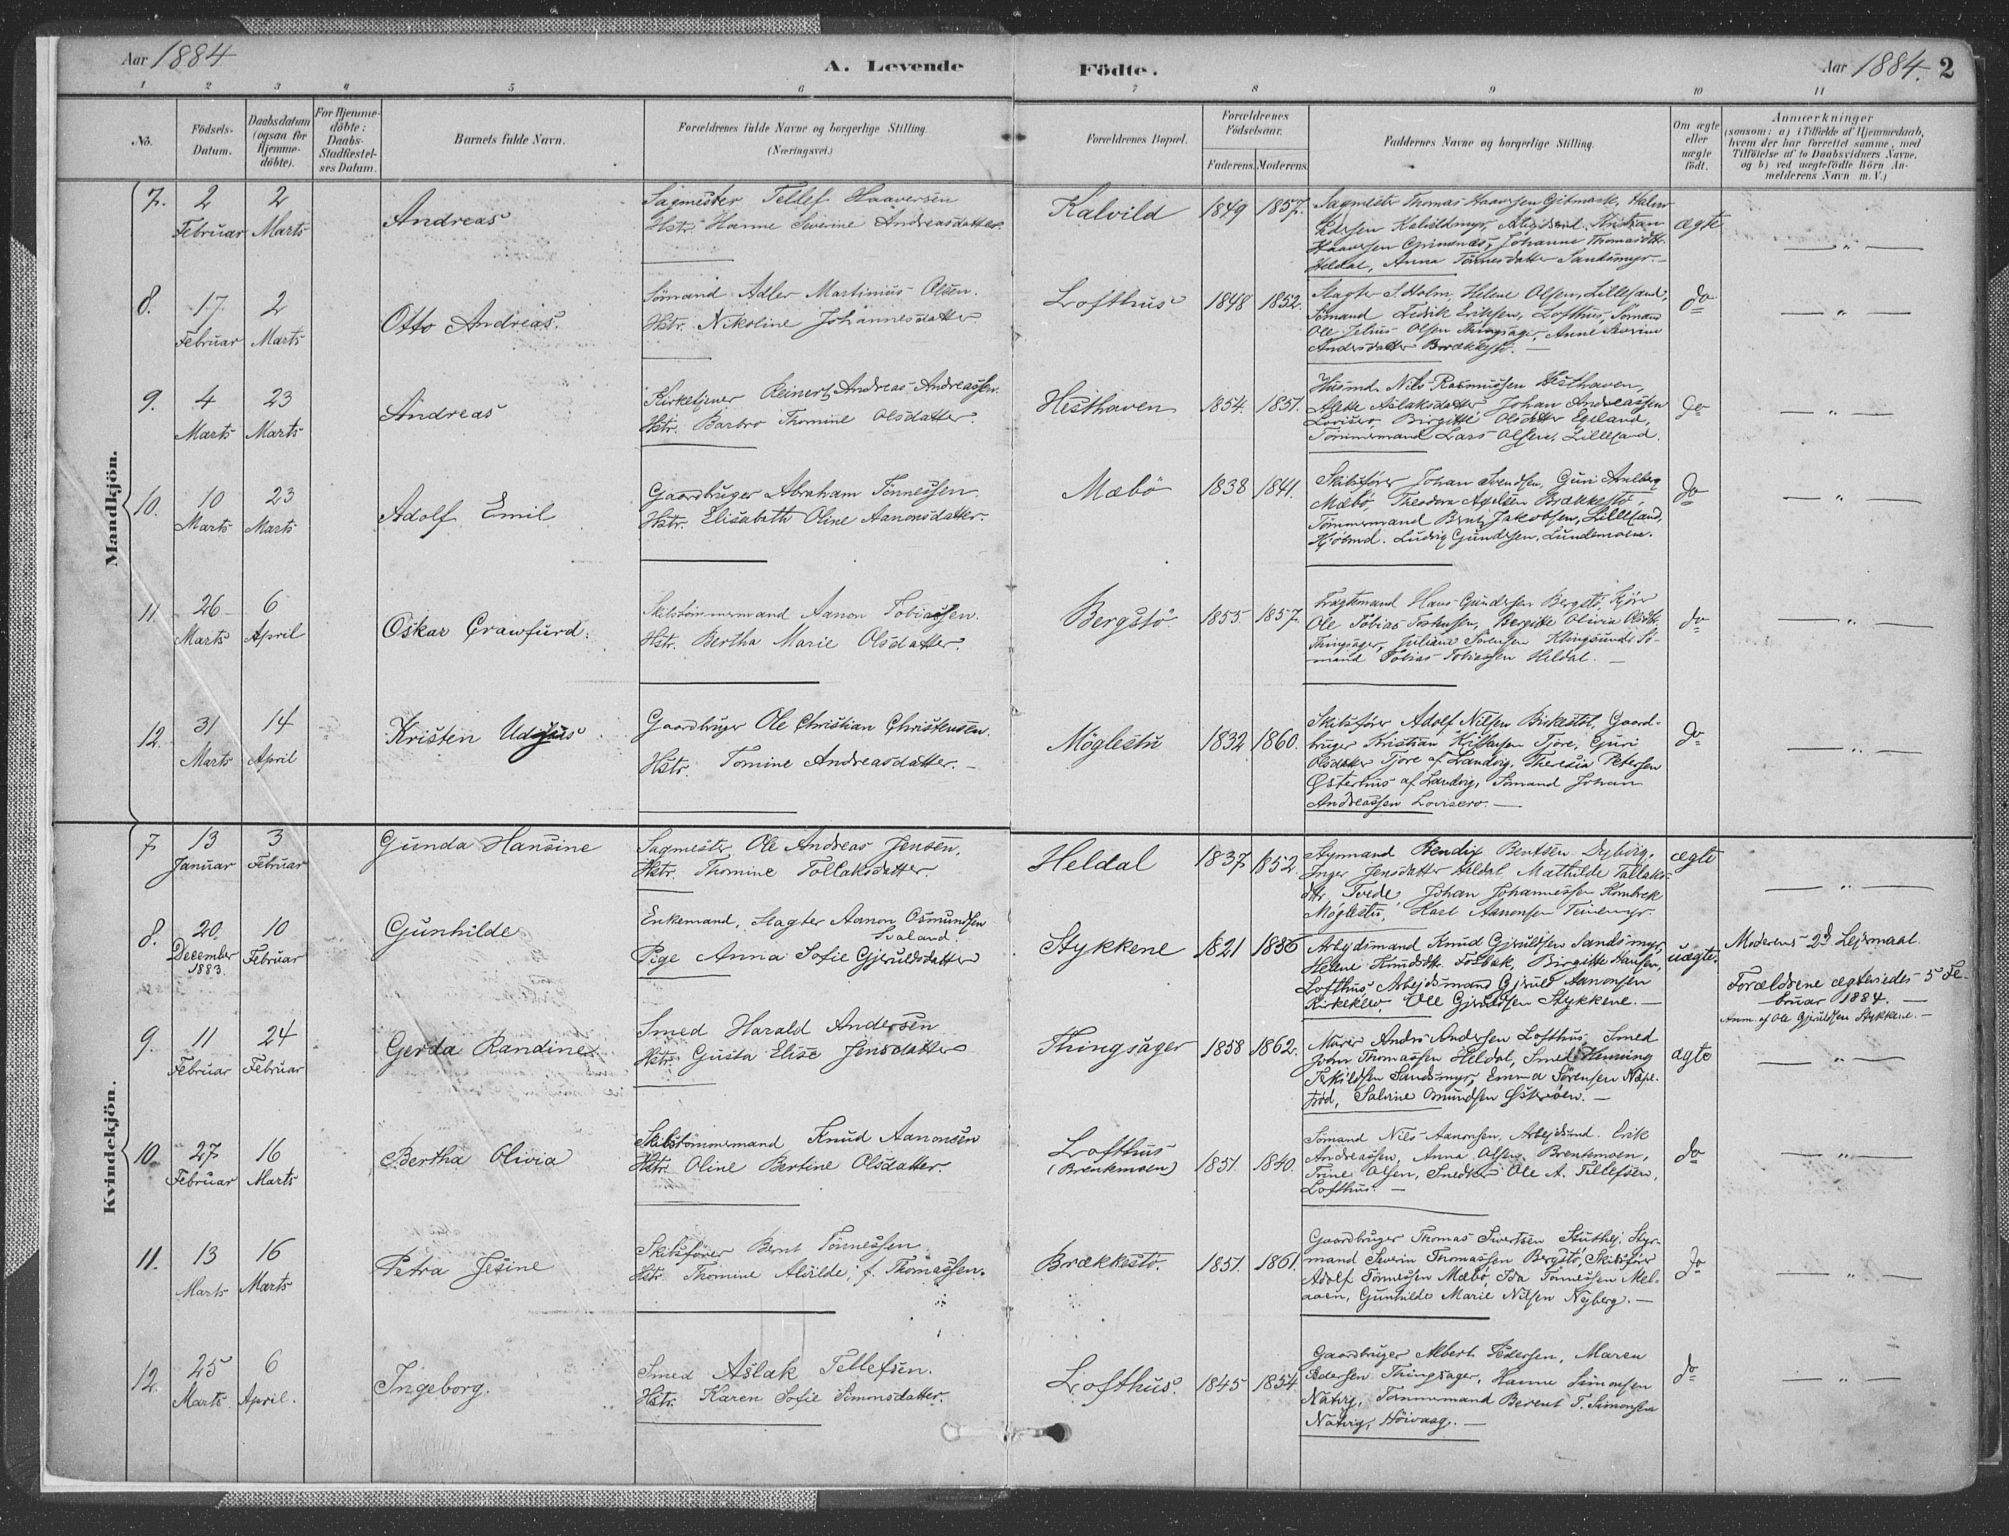 Aar 1884
A. Levende
Födte.
Aar 1884.
2
1 2 3 4 5 6 7 8 9 10 11
No.
Födsels-
Datum.
Daabsdatum
(ogsaa for
Hjemme-
döbte).
For Hjemme-
döbte:
Daabs-
Stadfestel-
ses Datum.
Barnets fulde Navn.
Forældrenes fulde Navne og borgerlige Stilling.
(Næringsvei.)
Forældrenes Bopæl.
Forældrenes
Födselsaar.
Faderens. Moderens.
Faddernes Navne og borgerlige Stilling.
Om ægte
eller
uægte
födt.
Anmærkninger
(saasom: a) i Tilfælde af Hjemmedaab,
hvem der har forrettet samme, med
Tilföielse af to Daabsvidners Navne,
og b) ved uægtefödte Börn An-
melderens Navn m. V.)
Mandkjön.
7. 2 Februar 2 Marts
Andreas
Sagmester Tellef Haaversen
Hstr. Hanne Severine Andreasdatter.
Kalvild 1849 1857.
Sagmester Thomas Haaversen
Kalvildmyr, Arbeidsmd. Kristian
Haaversen Grimenæs, Johanne Thomasdtr.
Heldal, Anna Tönnesdatter Sandsmyr.
ægte
— „ —
8. 17 Februar 2 Marts
Otto Andreas.
Sömand Adler Martinius Olsen.
Hstr. Nikoline Johannesdatter.
Lofthus 1848 1852.
Slagter S. Holm, Helene Olsen, Lillesand,
Sömand Eriksen, Lofthus, Sömand
Ole Julius Olsen Thingsager, Anne Severine
Andersdatter Brækkestö. —
do
— „ —
9. 4 Marts 23 Marts
Andreas
Kirketjener Reinert Andreas Andreassen.
Hstr. Barbro Thomine Olsdatter.
Hesthaven 1854. 1851.
Husmd. Nils Rasmussen Hesthaven,
Aslaksdatter, Johan Andreassen
Lovisero, Birgitte Olsdatter Egeland,
Tömmermand Lars Olsen, Lillesand.
do
— „ —
10. 10 Marts 23 Marts
Adolf Emil
Gaardbruger Abraham Tönnessen.
Hstr. Elisabeth Oline Aanonsdatter.
Mæbö 1838 1841.
Skibsförer Johan Svendsen, Guri
Mæbö, Theodora Axelsen Brækkestö,
Tömmermand Bent Jakobsen, Lillesand,
Kjöbmd. Ludvig Gundersen, Lundemoen.
do
— „ —
11. 26 Marts 6 April
Oskar Crawfurd.
Skibstömmermand Aanon Tobiassen.
Hstr. Bertha Marie Olsdatter.
Bergstö 1855 1857.
Fragtemand Hans Gundersen Bergstö,
Ole Tobias Bergitte Olivia Olsdtr.
Thingsager, Juliane Sörensen Klingsund, Sö-
mand Tobias Tobiassen Heldal. —
do
— „ —
12. 31 Marts 14 April
Kristen
Gaardbruger Ole Christian Christensen.
Hstr. Tomine Andreasdatter. —
Möglestu 1832 1860.
Skibsförer Adolf Nilsen Birkestöl, Gaard-
bruger Kristian Tjore, Guri
Olsdatter Tjore af Landvig, Theresia Petersen
Østerhus af Landvig, Sömand Johan
Andreassen Lovisero. —
do
— „ —
Kvindekjön.
7 13 Januar 3 Februar
Gunda Hansine
Sagmester Ole Andreas Jensen.
Hstr. Thomine Tollaksdatter
Heldal 1837 1852.
Styrmand Bendix Bentsen Dybörg.
Inger Jensdatter Heldal, Mathilde Tallaks-
dtr Tvede, Johan Johannessen
Möglestu, Karl Aanonsen
ægte
— „ —
8. 20. December 1883. 10 Februar
Gunhilde
Enkemand, Slagter Aanon Osmundsen
Svaland.
Pige Anna Sofie Gjeruldsdatter
Stykkene 1821 1856
Arbejdsmand Knud Gjeruldsen Sandsmyr,
Helene Knudsdtr. Fosbæk, Birgitte Hansen,
Lofthus, Arbejdsmand Gjeruld Aanonsen
Ole Gjeruldsen Stykkene. —
uægte.
Moderens 2det Lejermaal.
Forældrene ægteviedes 5 Fe-
bruar 1884. —
Anm. af Ole Gjeruldsen Stykkene. —
9. 11 Februar 24 Februar
Gerda Randine
Smed Harald Andersen
Hstr. Gusta Elise Jensdatter
Thingsager 1858 1862.
Murer Andr. Andersen Lofthus, Smed
John Thomassen Heldal, Smed Henning
Terkildsen Sandsmyr, Emma Sörensen Næpe-
tröd, Saverine Omundsen Österöen. —
ægte
— „ —
10. 27 Februar 16 Marts
Bertha Olivia
Skibstömmermand Knud Aanonsen
Hstr. Oline Bertine Olsdatter.
Lofthus
(Brenkmoen) 1851. 1840.
Sömand Nils Aanonsen, Arbejdsmd. Erik
Andreassen, Anna Olsen, Brenkemoen,
Trine Olsen, Snedker Ole A. Tellefsen,
Lofthus. —
do
— „ —
11. 13 Marts 16 Marts
Petra Jesine
Skibsförer Bernt Tönnessen.
Hstr. Thomine Alvilde, f. Thomassen.
Brækkestö. 1851. 1861.
Gaardbruger Thomas Sivertsen Stuthej, Styr-
mand Severin Thomassen Bergstö, Skibsförer
Adolf Tönnessen Mæbö, Ida Tönnessen Mel-
aaen, Gunhilde Marie Nilsen Nyberg. —
do
— „ —
12. 25 Marts 6 April.
Ingeborg.
Smed Aslak Tellefsen.
Hstr. Karen Sofie Simonsdatter.
Lofthus. 1845 1854
Gaardbruger Albert Pedersen, Maren
Pedersen Thingsager, Hanne Simonsen
Natvig, Tömmermand Berent T. Simonsen
Natvig, Höivaag. —
do
— „ —